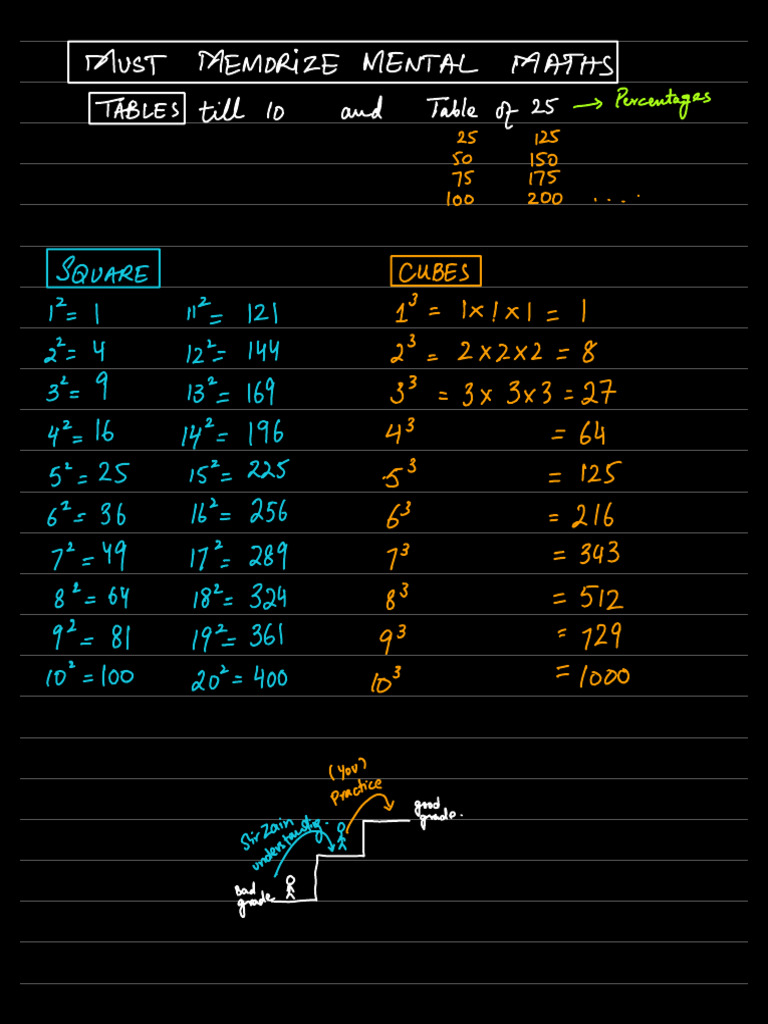 MUST MEMORIZE MENTAL MATHS
TABLES till 10 and Table of 25 → Percentages
25 125
50 150
75 175
100 200 .....
SQUARE
1² = 1
2² = 4
3² = 9
4² = 16
5² = 25
6² = 36
7² = 49
8² = 64
9² = 81
10² = 100
11² = 121
12² = 144
13² = 169
14² = 196
15² = 225
16² = 256
17² = 289
18² = 324
19² = 361
20² = 400
CUBES
1³ = 1×1×1 = 1
2³ = 2×2×2 = 8
3³ = 3×3×3 = 27
4³ = 64
5³ = 125
6³ = 216
7³ = 343
8³ = 512
9³ = 729
10³ = 1000
(You)
Practice
good
grade.
Sir Zain
understanding.
Bad
grade